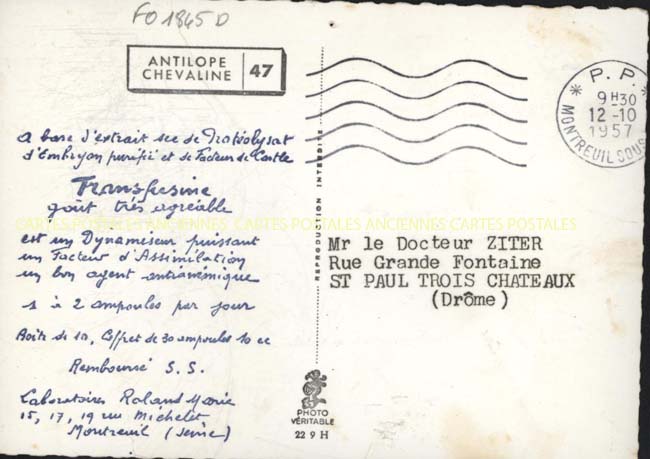 FO 1845 D
ANTILOPE
CHEVALINE 47
a base d'extrait sec de Protéolysat
d'Embryon purifié et de Facteur de Castle
Transfusine
goût très agréable
est un Dynamiseur puissant
un Facteur d'Assimilation
un bon agent antianémique
1 à 2 ampoules par jour
Boîte de 10, Coffret de 30 ampoules 10 cc
Remboursé S.S.
Laboratoires Roland Marie
15, 17, 19 rue Michelet
Montreuil (Seine)
REPRODUCTION INTERDITE
PHOTO
VÉRITABLE
22 9 H
P. P.
9H30
12-10
1957
MONTREUIL SOUS
Mr le Docteur ZITER
Rue Grande Fontaine
ST PAUL TROIS CHATEAUX
(Drôme)
CARTES POSTALES ANCIENNES CARTES POSTALES ANCIENNES CARTES POSTALES